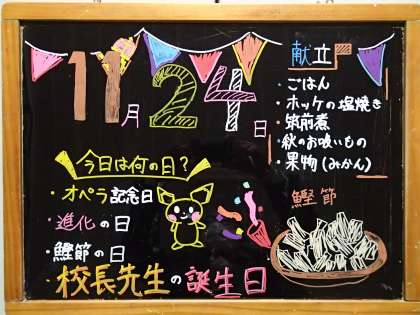 11月24日
献立
・ごはん
・ホッケの塩焼き
・筑前煮
・秋のお吸いもの
・果物(みかん)
今日は何の日?
・オペラ記念日
・進化の日
・鰹節の日
・校長先生の誕生日
鰹節